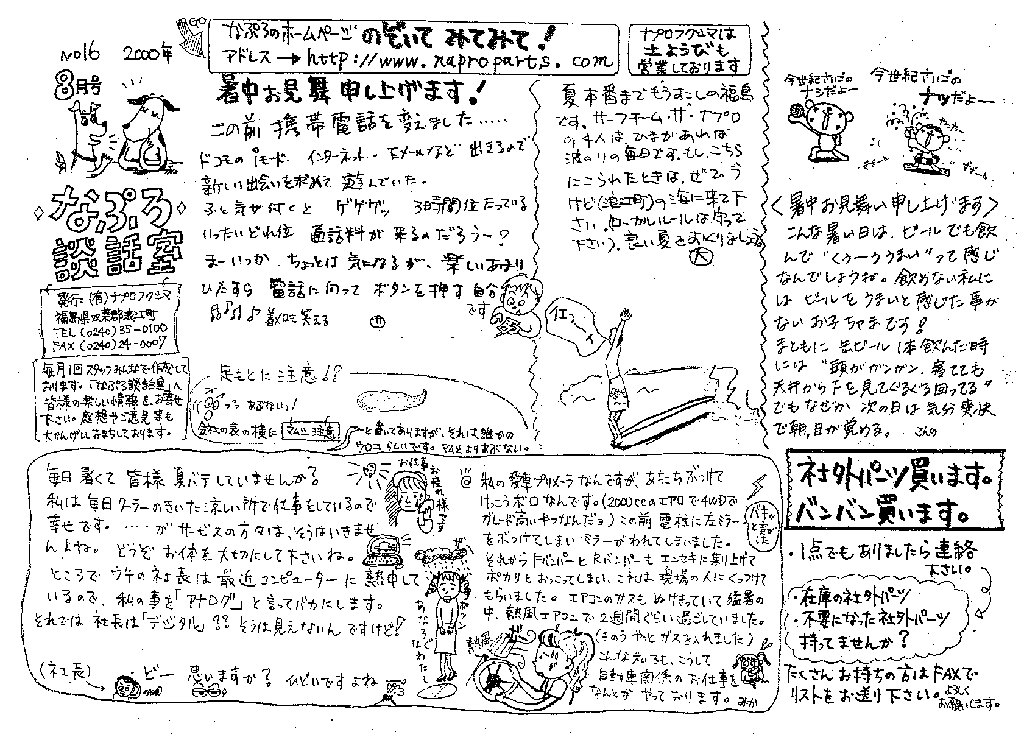 No16 2000年
8月号
なぷろ
談話室
発行:(有)ナプロフクシマ
福島県双葉郡浪江町
TEL (0240)35-0100
FAX (0240)24-0007
毎月1回スタッフみんなで作成して
おります。「なぷろ談話室」へ
皆様の楽しい情報をお寄せ
下さい。感想やご意見等も
大かんげいお待ちしております。
なぷろのホームページ のぞいて みてみて!
アドレス→http://www.naproparts.com
ナプロフクシマは
土ようびも
営業しております
暑中お見舞申し上げます!
この前 携帯電話を変えました……
ドコモのiモード インターネット・Eメールなど 出きるので
新しい出会いを求めて 遊んでいた。
ふと気が付くと ゲゲゲッ 3時間位たっている
いったいどれ位 通話料が来るのだろう〜?
まーいっか、ちょっとは 気になるが、楽しいあまり
ひたすら 電話に向って ボタンを押す 自分
です
足もとに注意!!
マムシ注意
と書いてありますが、それは誰かの
夏本番までもうすこしの福島
です。サーフチーム・ザ・ナプロ
の4人はひまがあれば
波のりの毎日です。もし、こちら
にこられたときは、ぜひ
うけど(浪江町)の海に来て下
さい。ローカルルールは守って
下さい。良い夏をおくりましょう
今世紀さいごの
ナツだよー
今世紀さいごの
ナツだよー
<暑中お見舞い申し上げます>
こんな暑い日は、ビールでも飲
んで“くぅーうまい”って感じ
なんでしょうね。飲めない私に
は ビールをうまいと感じた事が
ないお子ちゃまです!
まともに 缶ビール1本飲んだ時
には “頭がガンガン、寝てても
天井から下を見てぐるぐる回ってる”
でもなぜか 次の日は気分爽快
で朝、目が覚める。
毎日暑くて 皆様 夏バテしていませんか?
私は毎日クーラーのきいた涼しい所で仕事をしているので
幸せです。……が サービスの方々は、そうはいきませ
んよね。 どうぞ お体を大切にして下さいね。
ところで ウチの社長は 最近 コンピューターに 熱中して
いるので、私の事を「アナログ」と言ってバカにします。
それでは 社長は「デジタル」?? そうは見えないんですけど!
(社長)
どー 思いますか? ひどいですよね
私の愛車プリメーラなんですが、あちこちぶつけて
けっこうボロなんです。(2000ccのエアロで4WDで
グレード高いやつなんだョ)この前 電柱に左ミラー
をぶつけてしまいミラーがわれてしまいました。
それからFバンパーとRバンパーも エンセキに乗り上げて
ポカリとおっこってしまい、これは 現場の人にくっつけて
もらいました。エアコンのガスも ぬけきっていて猛暑の
中、熱風エアコンで2週間ぐらい過ごしていました。
(きのう やっと ガスを入れました)
こんな先いろも、こうして
自動車関係のお仕事を
なんとか やっております。みか
社外パーツ買います。
バンバン買います。
・1点でもありましたら連絡
下さい。
・在庫の社外パーツ
・不要になった社外パーツ
持ってませんか?
たくさんお持ちの方はFAXで
リストをお送り下さい。よろしく
お願いします。